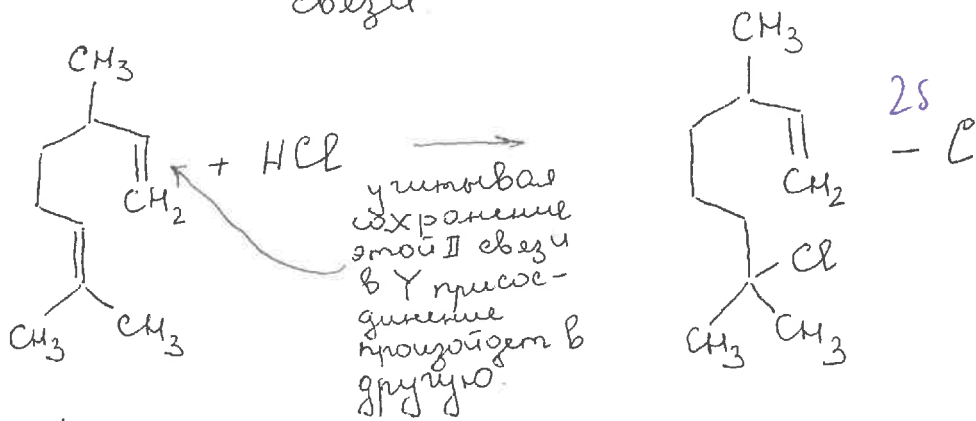 связи
CH₃
CH₃
25
+ HCl
— C
CH₂
CH₂
учитывая
сохранение
этой II связи
в Y присое-
динение
произойдет в
другую
Cl
CH₃
CH₃
CH₃
CH₃